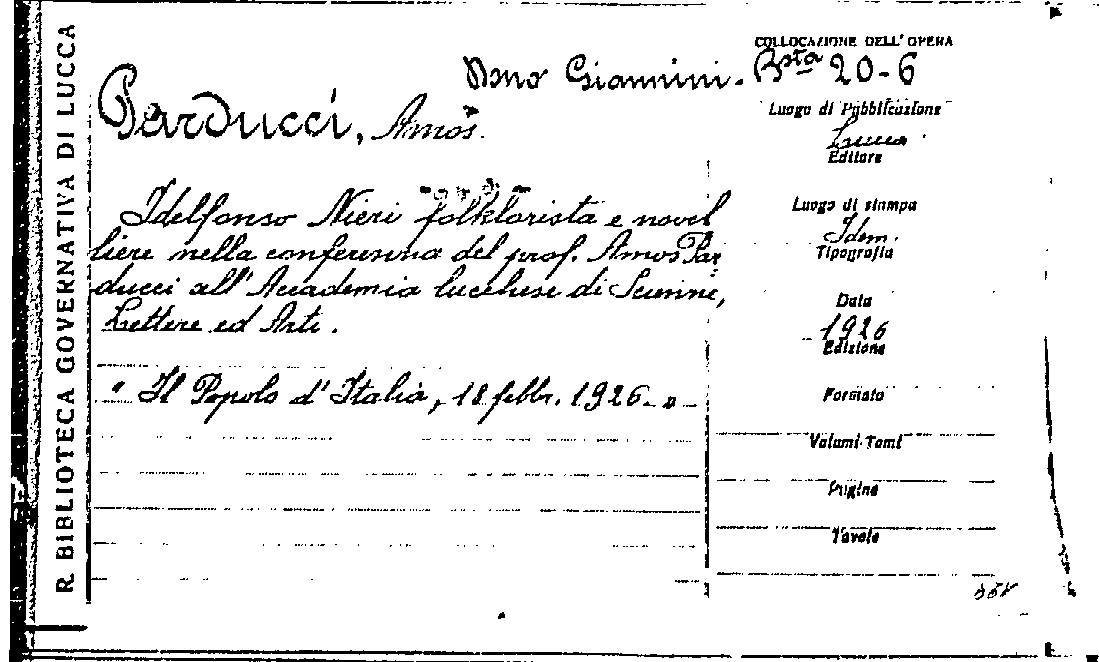 R. BIBLIOTECA GOVERNATIVA DI LUCCA
COLLOCAZIONE DELL'OPERA
Giannini. Bsta 20-6
Parducci, Amos.
Idelfonso Nieri folklorista e novel
liere nella conferenza del prof. Amos Par
ducci all'Accademia lucchese di Scienze,
Lettere ed Arti.
"Il Popolo d'Italia, 18 febbr. 1926-"-
Luogo di Pubblicazione
Lucca
Editore
Luogo di stampa
Idem.
Tipografia
Data
1926
Edizione
Formato
Volumi-Tomi
Pagine
Tavole